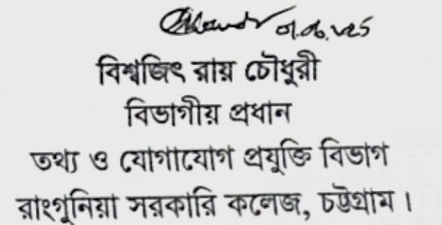 01.06.25
বিশ্বজিৎ রায় চৌধুরী
বিভাগীয় প্রধান
তথ্য ও যোগাযোগ প্রযুক্তি বিভাগ
রাংগুনিয়া সরকারি কলেজ, চট্টগ্রাম।